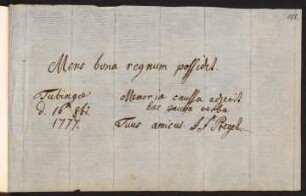 Mens bona regnum possidet.
Tubingæ
d. 16. 8br.
1777.
Memoriæ caussa adjecit
hæc pauca verba
Tuus amicus. Pregel.